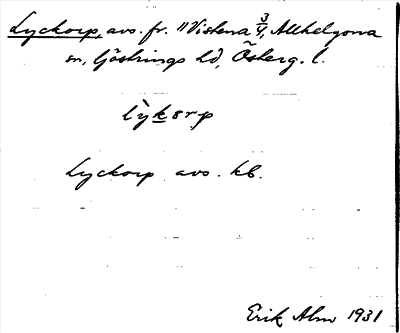 Lyckorp, avs. fr. "Vistena 3/4, Allhelgona
sn, Göstrings hd, Österg. l.
lỳkσrp
Lyckorp avs. kb.
Erik Alm 1931